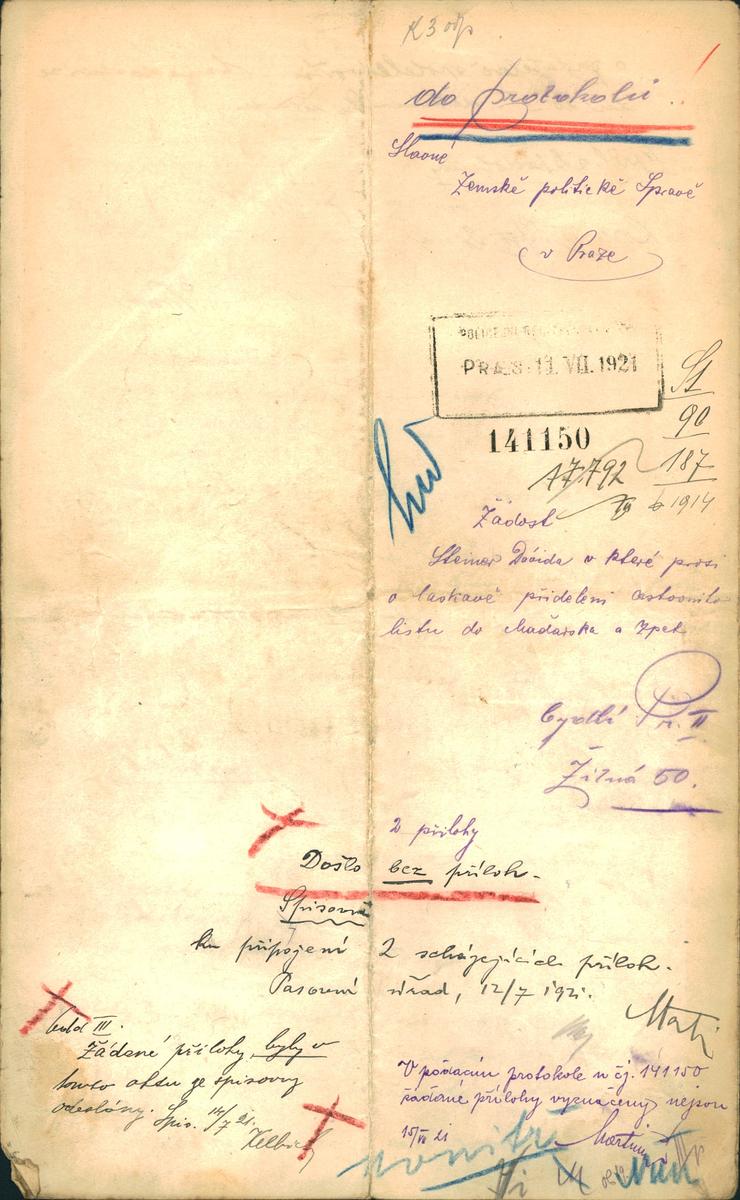 K 3 odp
do protokolu
Slavné
Zemské politické Správě
v Praze
PRÆS. 11. VII. 1921
141150
St
90
187
6 1914
17.792
Žádost
Steiner Dávida v které prosi
o laskavé přideleni cestovniho
listu do Maďarska a Zpet
bydlí Pr. II
Žitná 50.
2 přílohy
Došlo bez příloh.
Spisovně
ku připojení 2 scházejících příloh.
Pasovní úřad, 12/7 1921.
odd III.
Žádané přílohy byly v
tomto aktu ze spisovny
odeslány. Spis. 14/7 21.
V podacím protokole u čj. 141150
žádné přílohy vyznačeny nejsou
15/VII 21